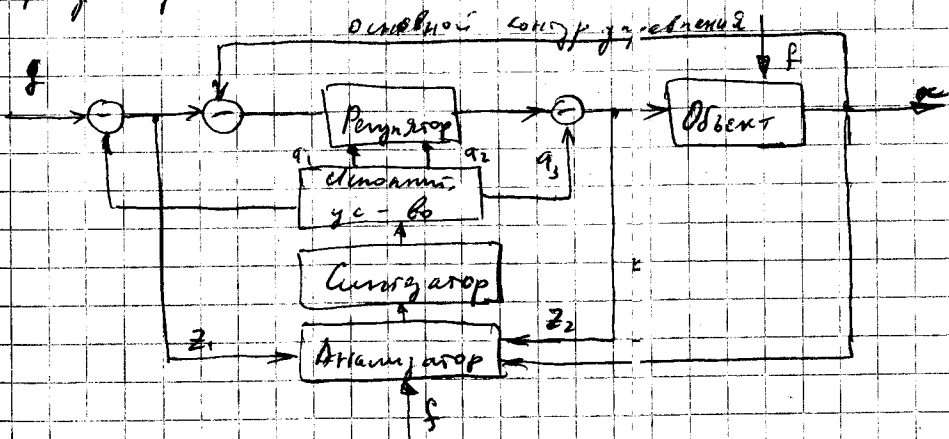 основной контур управления
g
f
x
Регулятор
Объект
q₁
q₂
q₃
Исполнит.
ус-во
Синтезатор
Z₁
Z₂
Анализатор
f